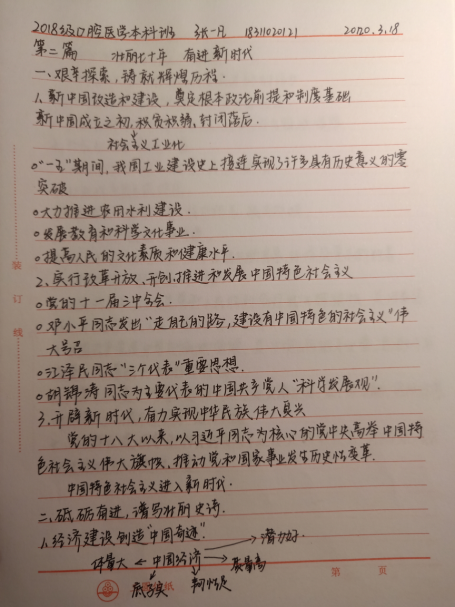 2018级口腔医学本科班 张一凡 18311020121 2020.3.18
第二篇 壮丽七十年 奋进新时代
一、艰辛探索,铸就辉煌历程.
1、新中国改造和建设,奠定根本政治前提和制度基础
新中国成立之初,积贫积弱、封闭落后.
社会主义工业化
"一五"期间,我国工业建设史上接连实现了许多具有历史意义的零
突破
大力推进农田水利建设.
发展教育和科学文化事业.
提高人民的文化素质和健康水平.
2、实行改革开放、开创、推进和发展中国特色社会主义
党的十一届三中全会.
邓小平同志发出"走自己的路,建设有中国特色的社会主义"伟
大号召
江泽民同志"三个代表"重要思想.
胡锦涛同志为主要代表的中国共产党人"科学发展观".
3、开辟新时代,有力实现中华民族伟大复兴
党的十八大以来,以习近平同志为核心的党中央高举中国特
色社会主义伟大旗帜、推动党和国家事业发生历史性变革.
中国特色社会主义进入新时代.
二、砥砺奋进,谱写壮丽史诗.
1、经济建设创造"中国奇迹".
潜力好.
体量大 ← 中国经济 → 质量高
底子实 韧性足
装
订
线
纸
第 页